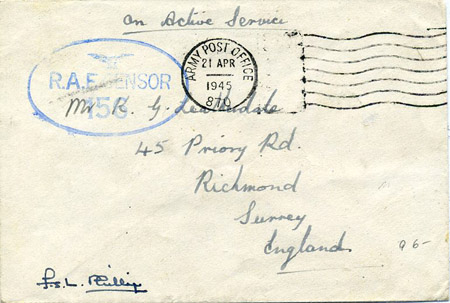 On Active Service
ARMY POST OFFICE
21 APR
1945
R.A.F. CENSOR
156
Mr R. G.
45 Priory Rd.
Richmond
Surrey
England
96-
Phillip